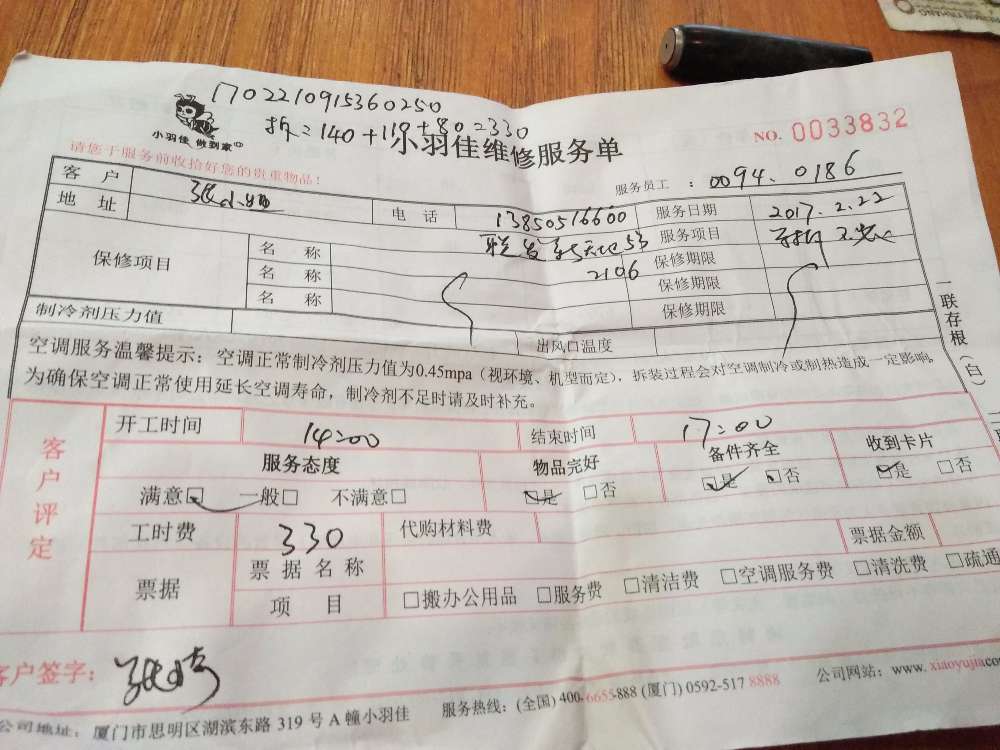 170221091536 0250
拆=140+119+80=330
小羽佳 做到家
小羽佳维修服务单
NO. 0033832
请您于服务前收拾好您的贵重物品!
服务员工 : 0094. 0186
客 户
电 话 13850516600 服务日期 2017.2.22
地 址 服务项目
保修项目 名 称 保修期限
名 称 2106 保修期限
名 称 保修期限
制冷剂压力值 出风口温度
一联存根(白)
空调服务温馨提示:空调正常制冷剂压力值为0.45mpa(视环境、机型而定),拆装过程会对空调制冷或制热造成一定影响,
为确保空调正常使用延长空调寿命,制冷剂不足时请及时补充。
客户评定
开工时间 14:00 结束时间 17:00
服务态度 物品完好 备件齐全 收到卡片
满意□ 一般□ 不满意□ □是 □否 □是 □否 □是 □否
工时费 330 代购材料费 票据金额
票据 票据名称
项 目 □搬办公用品 □服务费 □清洁费 □空调服务费 □清洗费 □疏通
客户签字:
公司地址:厦门市思明区湖滨东路 319 号 A 幢小羽佳 服务热线:(全国) 400-6655-888 (厦门) 0592-517 8888 公司网站:www. xiaoyujia.co